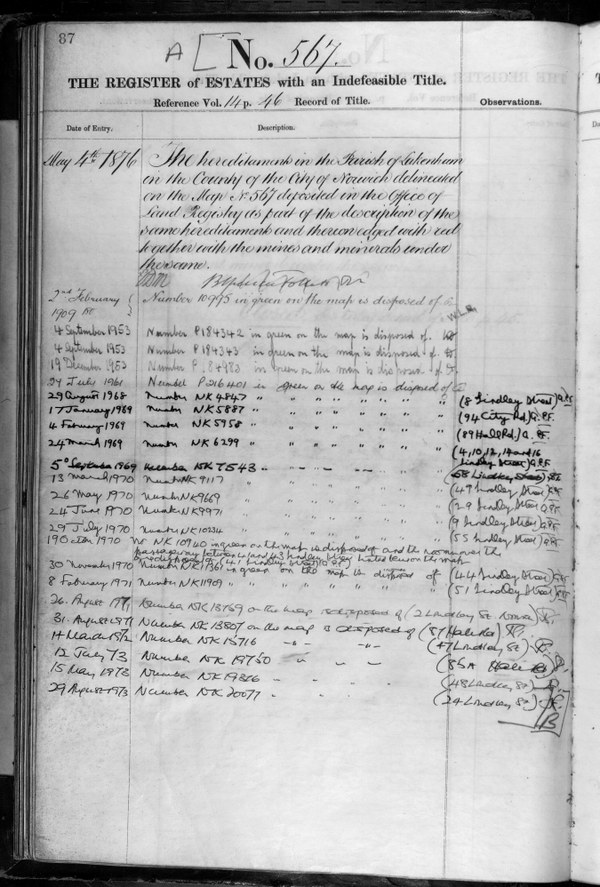 87
A [ No. 567.
THE REGISTER of ESTATES with an Indefeasible Title.
Reference Vol. 14 p. 46 Record of Title.
Observations.
Date of Entry. Description.
May 4th 1876 The hereditaments in the Parish of Lakenham
in the County of the City of Norwich delineated
on the Map No. 567 deposited in the Office of
Land Registry as part of the description of the
same hereditaments and thereon edged with red
together with the mines and minerals under
the same.
2nd February 1909 Number 10995 in green on the map is disposed of
4 September 1953 Number P184342 in green on the map is disposed of.
4 September 1953 Number P184343 in green on the map is disposed of.
19 December 1953 Number P. in green on the map is disposed of.
24 July 1961 Number P216401 in green on the map is disposed of
29 August 1968 Number NK4847 " " " " " " (8 Lindley Street)
17 January 1969 Number NK5887 " " " " " " (94 City Rd)
4 February 1969 Number NK5958 " " " " " " (89 Hall Rd.)
24 March 1969 Number NK6299 " " " " " " (4, 10, 12, 14 and 16
Lindley Street)
5 September 1969 Number NK7543 (58 Lindley Street)
13 March 1970 Number NK9117 (49 Lindley Street)
26 May 1970 Number NK9669 (29 Lindley Street)
24 June 1970 Number NK9971 (9 Lindley Street)
29 July 1970 Number NK10334 (55 Lindley Street)
19 Oct 1970 No NK10940 in green on the map is disposed of and the
passageway between 41 and 43 Lindley Street on the map
30 November 1970 Number NK11361 in green on the map is disposed of (44 Lindley Street)
8 February 1971 Number NK11909 (51 Lindley Street)
26 August 1971 Number NK13759 on the map is disposed of (2 Lindley St
31 August 1971 Number NK13807 on the map is disposed of (87 Hall Rd)
14 March 1972 Number NK15716 (47 Lindley St)
12 July 73 Number NK19750 (85A Hall Rd)
15 May 1973 Number NK19366 (48 Lindley St)
29 August 1973 Number NK20077 (24 Lindley St)